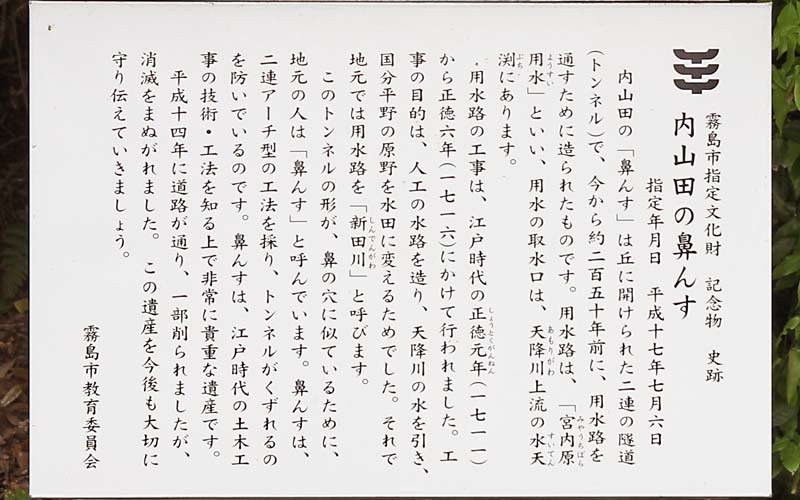 霧島市指定文化財　記念物　史跡
内山田の鼻んす
指定年月日　平成十七年七月六日
内山田の「鼻んす」は丘に開けられた二連の隧道
(トンネル)で、今から約二百五十年前に、用水路を
通すために造られたものです。用水路は、「宮内原
用水」といい、用水の取水口は、天降川上流の水天
渕にあります。
用水路の工事は、江戸時代の正徳元年(一七一一)
から正徳六年(一七一六)にかけて行われました。工
事の目的は、人工の水路を造り、天降川の水を引き、
国分平野の原野を水田に変えるためでした。それで
地元では用水路を「新田川」と呼びます。
このトンネルの形が、鼻の穴に似ているために、
地元の人は「鼻んす」と呼んでいます。鼻んすは、
二連アーチ型の工法を採り、トンネルがくずれるの
を防いでいるのです。鼻んすは、江戸時代の土木工
事の技術・工法を知る上で非常に貴重な遺産です。
平成十四年に道路が通り、一部削られましたが、
消滅をまぬがれました。この遺産を今後も大切に
守り伝えていきましょう。
霧島市教育委員会